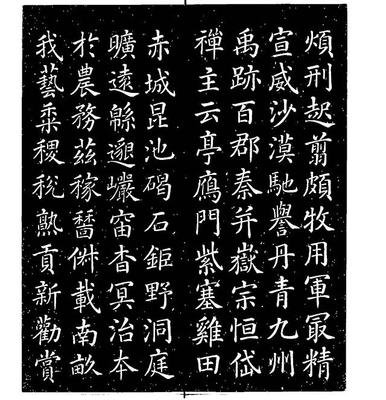 煩刑起翦頗牧用軍冣精
宣威沙漠馳譽丹青九州
禹跡百郡秦并嶽宗恒岱
禪主云亭鴈門紫塞雞田
赤城昆池碣石鉅野洞庭
曠遠緜邈巖峀杳冥治本
於農務茲稼穡俶載南畝
我藝黍稷稅熟貢新勸賞